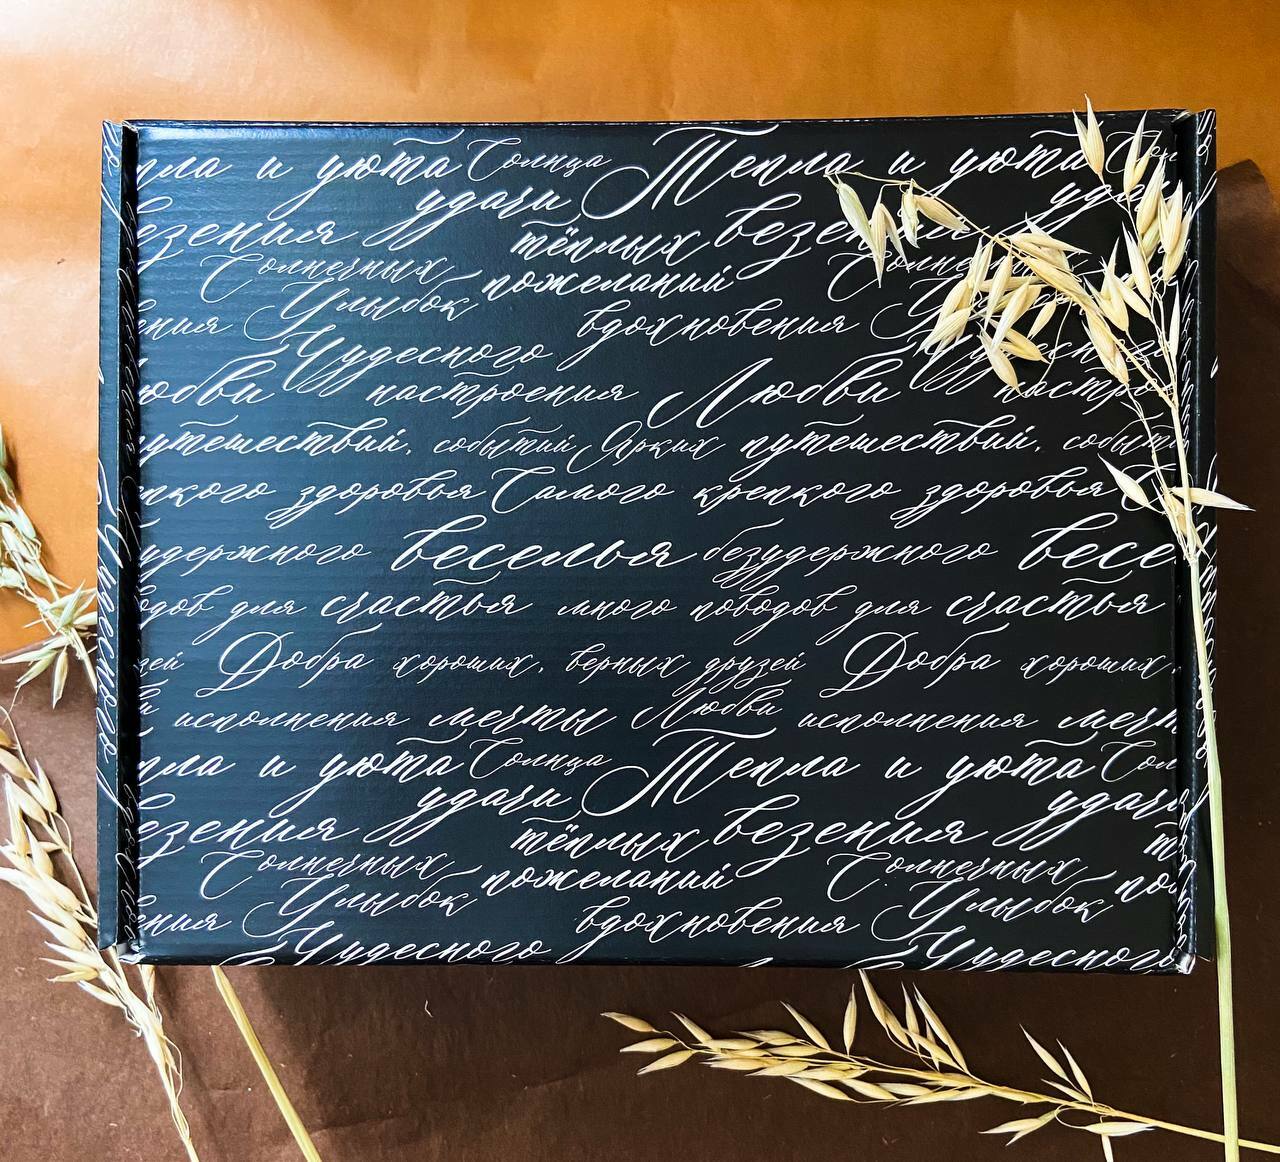 и уюта Солнца Тепла и уюта
удачи
везения тёплых везения
Солнечных пожеланий Солнечных
Улыбок вдохновения
Чудесного Чудесного
Любви настроения Любви
путешествий, событий Ярких путешествий,
здоровья Самого крепкого здоровья
безудержного веселья безудержного
для счастья много поводов для счастья
Добра хороших, верных друзей Добра хороших,
исполнения мечты Любви исполнения
и уюта Солнца Тепла и уюта
удачи удачи
везения тёплых везения
Солнечных пожеланий Солнечных
Улыбок вдохновения Улыбок
Чудесного Чудесного
Чудесного